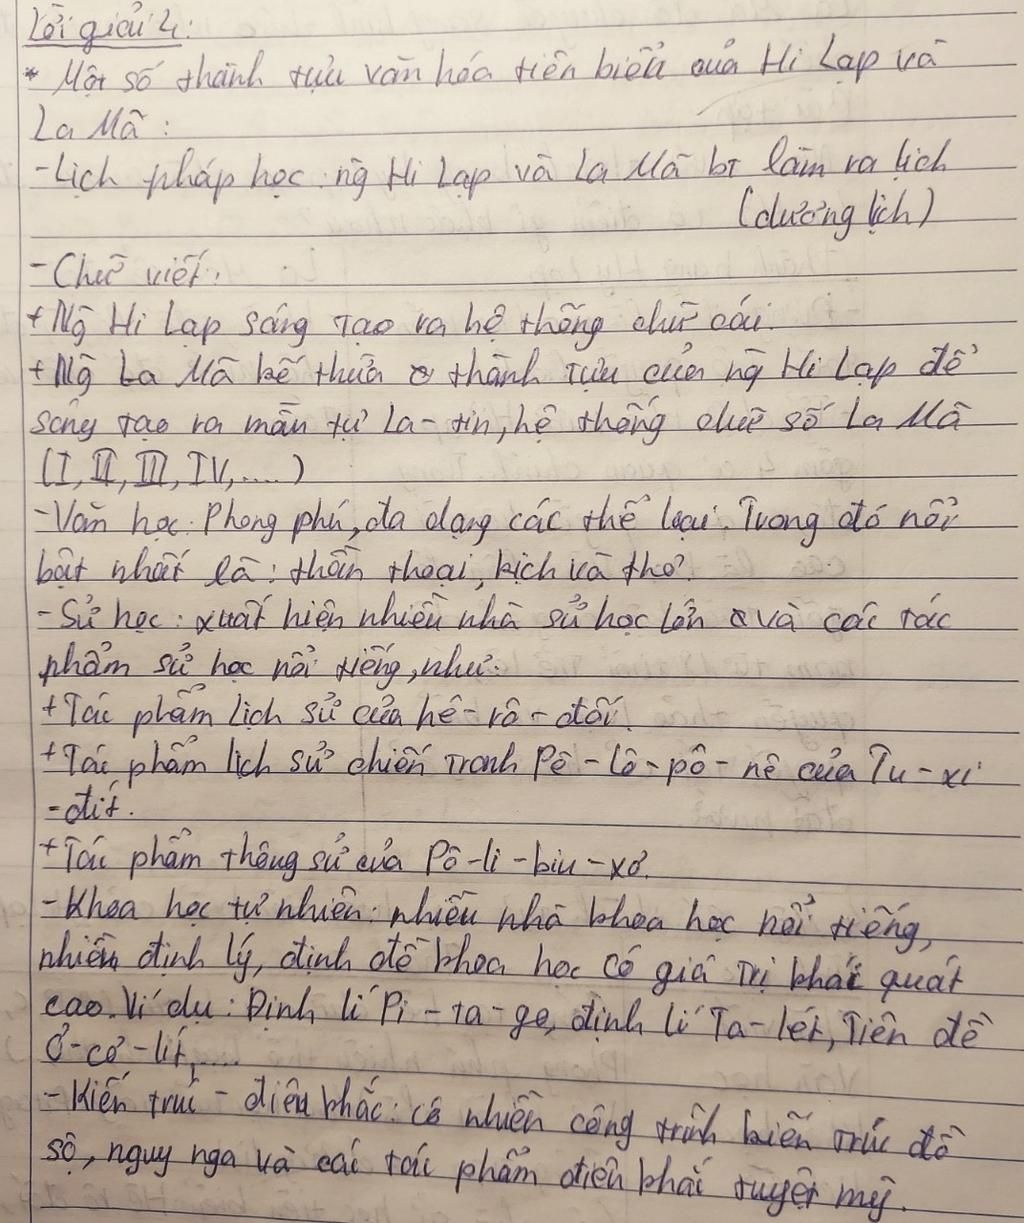 Lời giải 4:
* Một số thành tựu văn hóa tiên biểu của Hi Lạp và
La Mã:
- Lịch pháp học: ng Hi Lạp và La Mã bt làm ra lịch
(dương lịch)
- Chữ viết:
+ Ng Hi Lạp sáng tạo ra hệ thống chữ cái.
+ Ng La Mã kế thừa thành tựu của ng Hi Lạp để
sáng tạo ra mẫn tự La-tin, hệ thống chữ số La Mã
(I, II, III, IV,....)
- Văn học: Phong phú, đa dạng các thể loại. Trong đó nổi
bật nhất là: thần thoại, kịch và thơ.
- Sử học: xuất hiện nhiều nhà sử học lớn và các tác
phẩm sử học nổi tiếng, như:
+ Tác phẩm Lịch sử của hê-rô-đốt.
+ Tác phẩm lịch sử chiến tranh Pê-lô-pô-nê của Tu-xi
-đít.
+ Tác phẩm thông sử của Pô-li-biu-xơ.
- Khoa học tự nhiên: nhiều nhà khoa học nổi tiếng,
nhiều định lý, định đề khoa học có giá trị khái quát
cao. Ví dụ: Định lí Pi-ta-go, định lí Ta-lét, Tiên đề
Ơ-cơ-lít,....
- Kiến trúc - điêu khắc: có nhiền công trình kiến trúc đồ
sộ, nguy nga và các tác phẩm điêu khắc tuyệt mỹ.